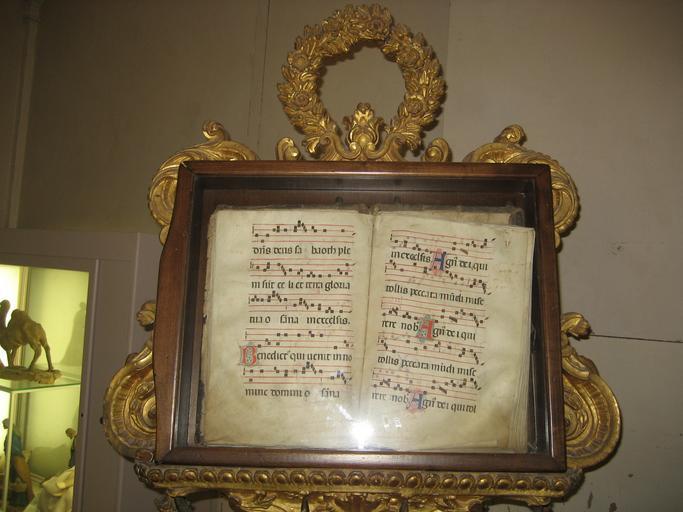 dn̄s deus sa baoth ple
ni sūt celi et terra gloria
tua o sāna in excelsis.
Benedict' qui uenit in no
mine domini o sāna
in excelsis. Agn' dei qui
tollis peccata mūdi mise
rere nob' Agn' dei qui
tollis peccata mūdi mise
rere nob' Agn' dei qui tol